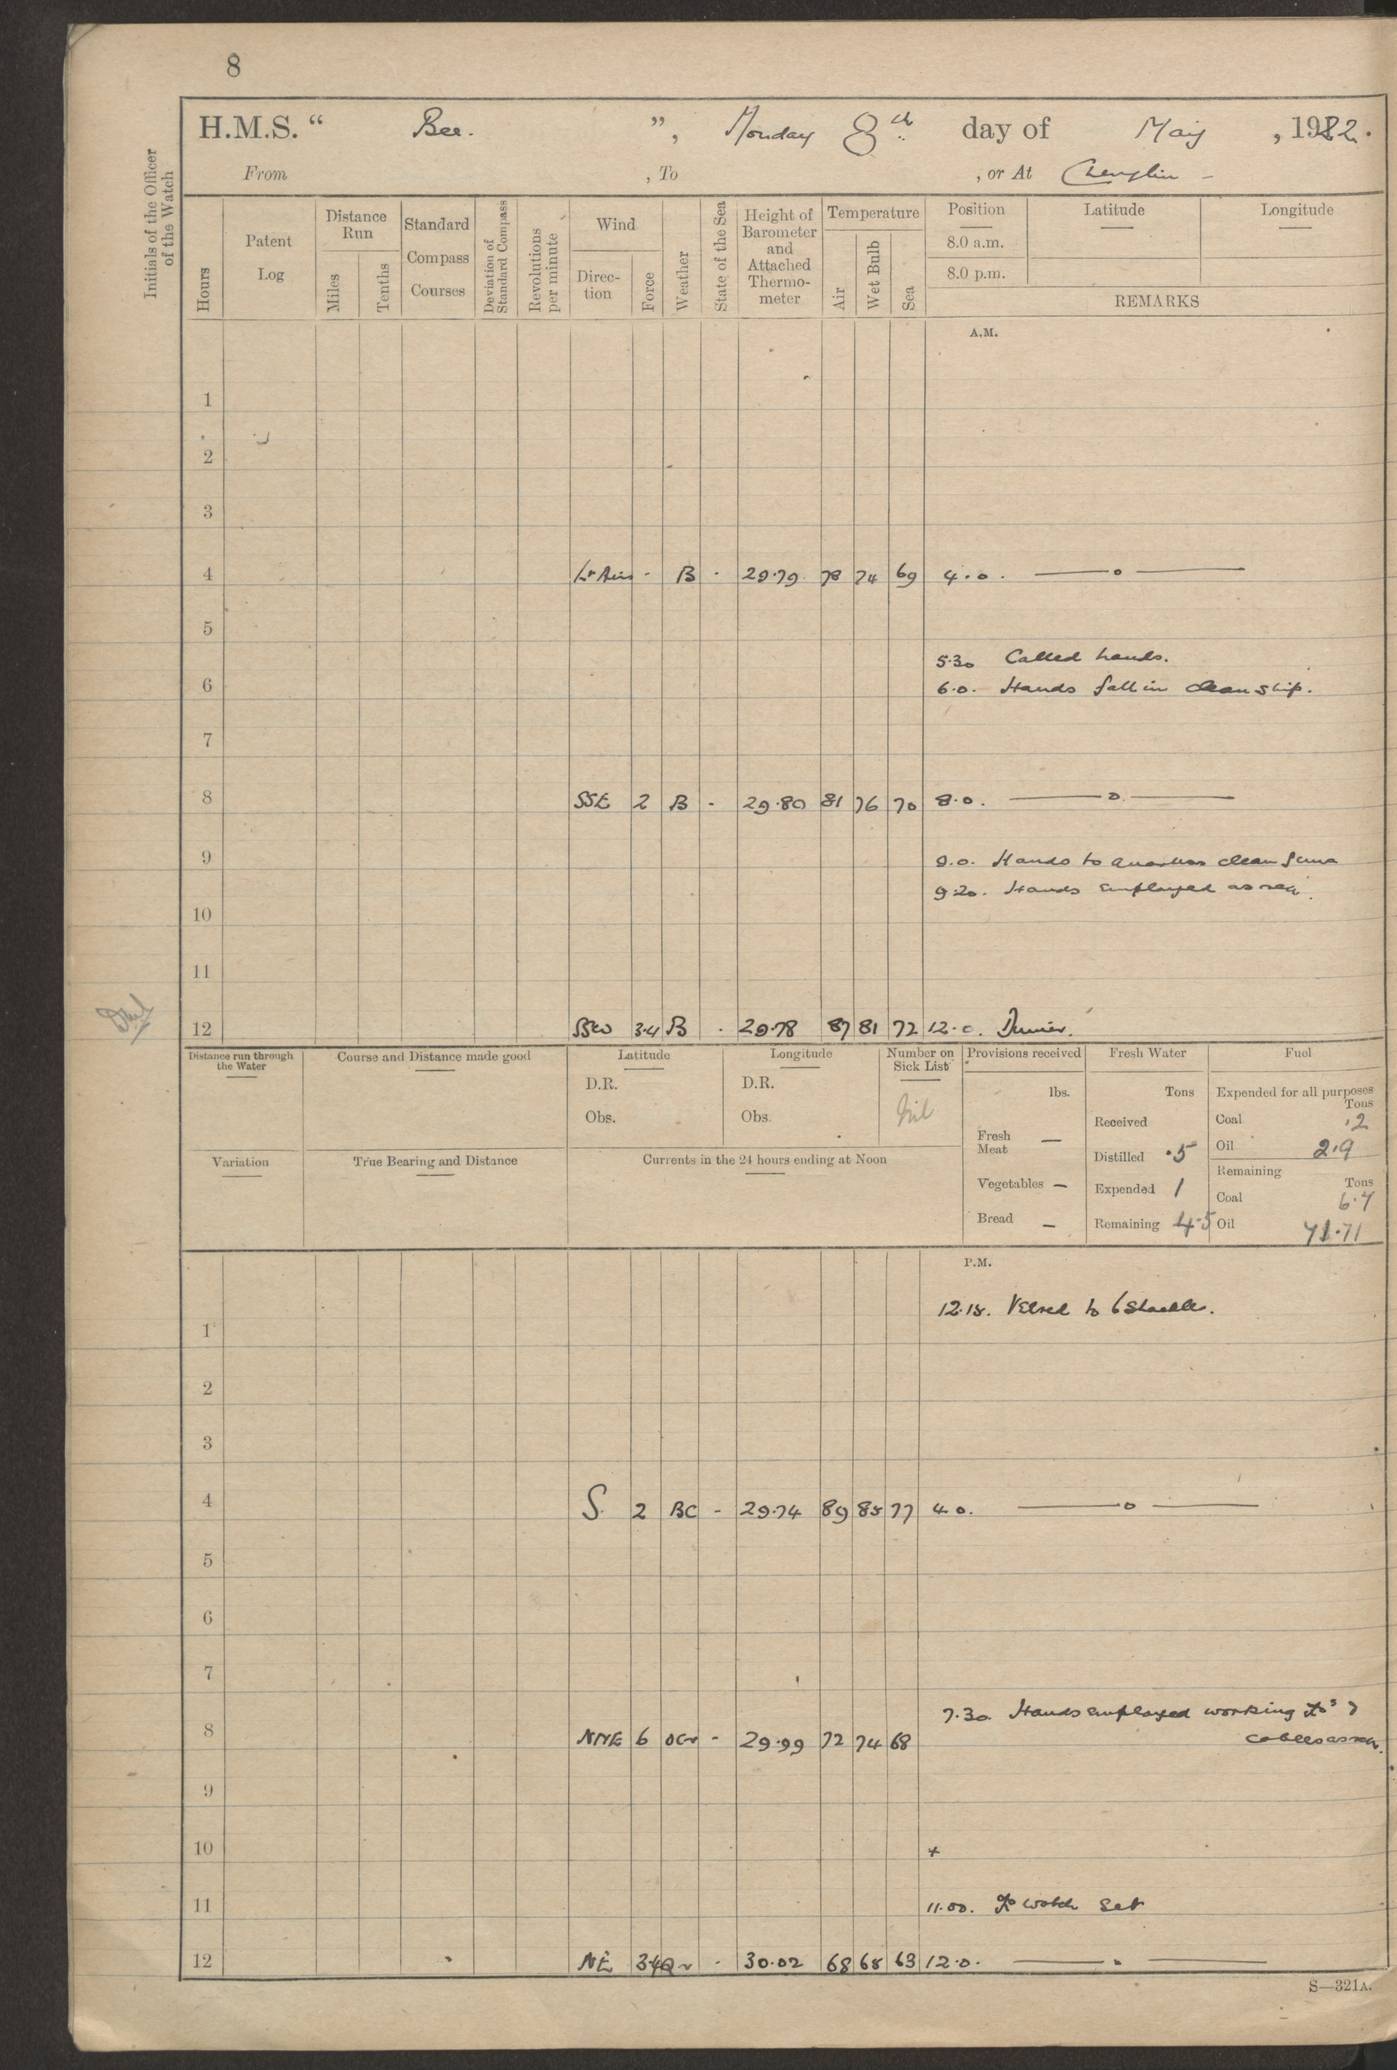 8
H.M.S. " Bee. ", Monday 8th day of May , 1922.
From , To , or At Chenglin -
Initials of the Officer of the Watch
Hours
Patent Log
Distance Run
Miles Tenths
Standard Compass Courses
Deviation of Standard Compass
Revolutions per minute
Wind
Direction Force
Weather
State of the Sea
Height of Barometer and Attached Thermometer
Temperature
Air Wet Bulb Sea
Position Latitude Longitude
8.0 a.m.
8.0 p.m.
REMARKS
A.M.
1
2
3
4 Lt Airs - B - 29.79 78 74 69 4.0. —— o ——
5
5.30 Called hands.
6 6.0. Hands fall in clean ship.
7
8 SSE 2 B - 29.80 81 76 70 8.0. —— o ——
9 9.0. Hands to quarters clean guns
9.20. Hands employed as req.
10
11
12 3.4 B - 29.78 87 81 72 12.0. Dinner.
Distance run through the Water
Course and Distance made good
Latitude
D.R.
Obs.
Longitude
D.R.
Obs.
Number on Sick List
Nil
Provisions received
lbs.
Fresh Meat —
Vegetables —
Bread —
Fresh Water
Tons
Received
Distilled .5
Expended 1
Remaining 4.5
Fuel
Expended for all purposes
Tons
Coal .2
Oil 2.9
Remaining
Tons
Coal 6.7
Oil 71.71
Variation
True Bearing and Distance
Currents in the 24 hours ending at Noon
P.M.
12.15. Veered to 6 Shackles.
1
2
3
4 S. 2 BC - 29.74 89 85 77 4.0. —— o ——
5
6
7
7.30. Hands employed working
8 NNE 6 - 29.99 72 74 68 cables as req.
9
10 +
11 11.00. watch set
12 NE 3.4 - 30.02 68 65 63 12.0. —— " ——
S—321A.